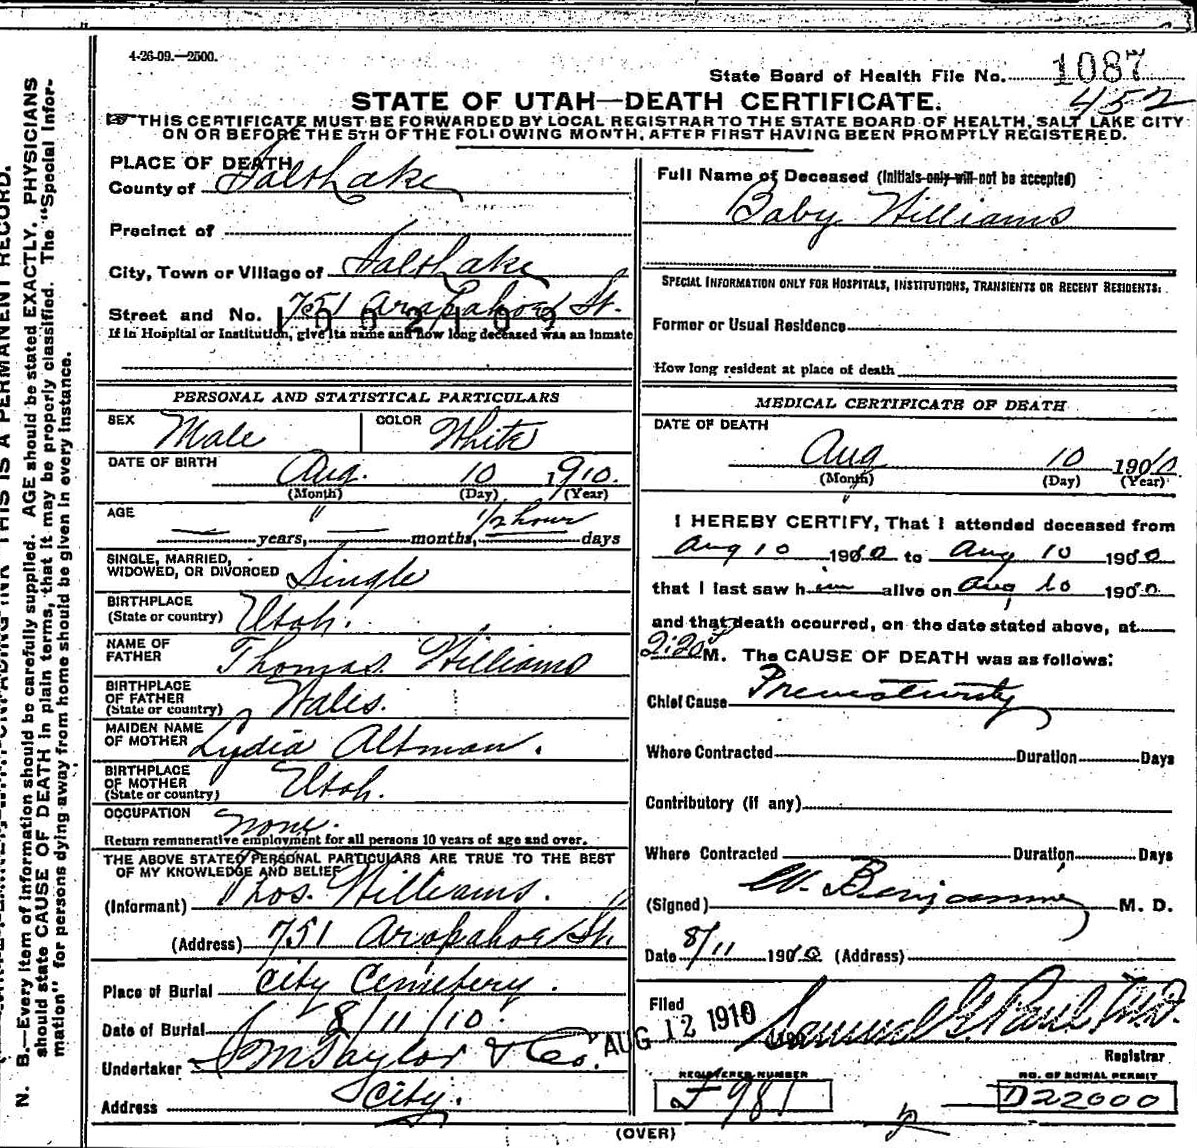 4-26-09.—2500.
State Board of Health File No. 1087
452
STATE OF UTAH—DEATH CERTIFICATE.
THIS CERTIFICATE MUST BE FORWARDED BY LOCAL REGISTRAR TO THE STATE BOARD OF HEALTH, SALT LAKE CITY
ON OR BEFORE THE 5TH OF THE FOLLOWING MONTH, AFTER FIRST HAVING BEEN PROMPTLY REGISTERED.
PLACE OF DEATH
County of Salt Lake
Precinct of
City, Town or Village of Salt Lake
Street and No. 751 Arapahoe St.
1002109
If in Hospital or Institution, give its name and how long deceased was an inmate
PERSONAL AND STATISTICAL PARTICULARS
SEX Male COLOR White
DATE OF BIRTH Aug. 10 1910.
(Month) (Day) (Year)
AGE — years, — months, 1/2 hour days
SINGLE, MARRIED,
WIDOWED, OR DIVORCED Single
BIRTHPLACE
(State or country) Utah.
NAME OF
FATHER Thomas Williams
BIRTHPLACE
OF FATHER
(State or country) Wales.
MAIDEN NAME
OF MOTHER Lydia Altman.
BIRTHPLACE
OF MOTHER
(State or country) Utah.
OCCUPATION none.
Return remunerative employment for all persons 10 years of age and over.
THE ABOVE STATED PERSONAL PARTICULARS ARE TRUE TO THE BEST
OF MY KNOWLEDGE AND BELIEF
(Informant) Thos. Williams.
(Address) 751 Arapahoe St.
Place of Burial City Cemetery.
Date of Burial 8/11/10.
Undertaker S M Taylor & Co.
Address City.
Full Name of Deceased (Initials only will not be accepted)
Baby Williams
SPECIAL INFORMATION ONLY FOR HOSPITALS, INSTITUTIONS, TRANSIENTS OR RECENT RESIDENTS:
Former or Usual Residence
How long resident at place of death
MEDICAL CERTIFICATE OF DEATH
DATE OF DEATH
Aug 10 1910
(Month) (Day) (Year)
I HEREBY CERTIFY, That I attended deceased from
Aug 10 1910 to Aug 10 1910
that I last saw h im alive on Aug 10 1910
and that death occurred, on the date stated above, at
2:20 P M. The CAUSE OF DEATH was as follows:
Chief Cause Prematurity
Where Contracted Duration Days
Contributory (if any)
Where Contracted Duration Days
(Signed) W. Benjamin M. D.
Date 8/11 1910 (Address)
Filed AUG 12 1910 Samuel G. Paul M.D.
Registrar
REGISTERED NUMBER
F 981
NO. OF BURIAL PERMIT
D22000
(OVER)
THIS IS A PERMANENT RECORD.
N. B.—Every item of information should be carefully supplied. AGE should be stated EXACTLY. PHYSICIANS
should state CAUSE OF DEATH in plain terms, that it may be properly classified. The "Special Infor-
mation" for persons dying away from home should be given in every instance.